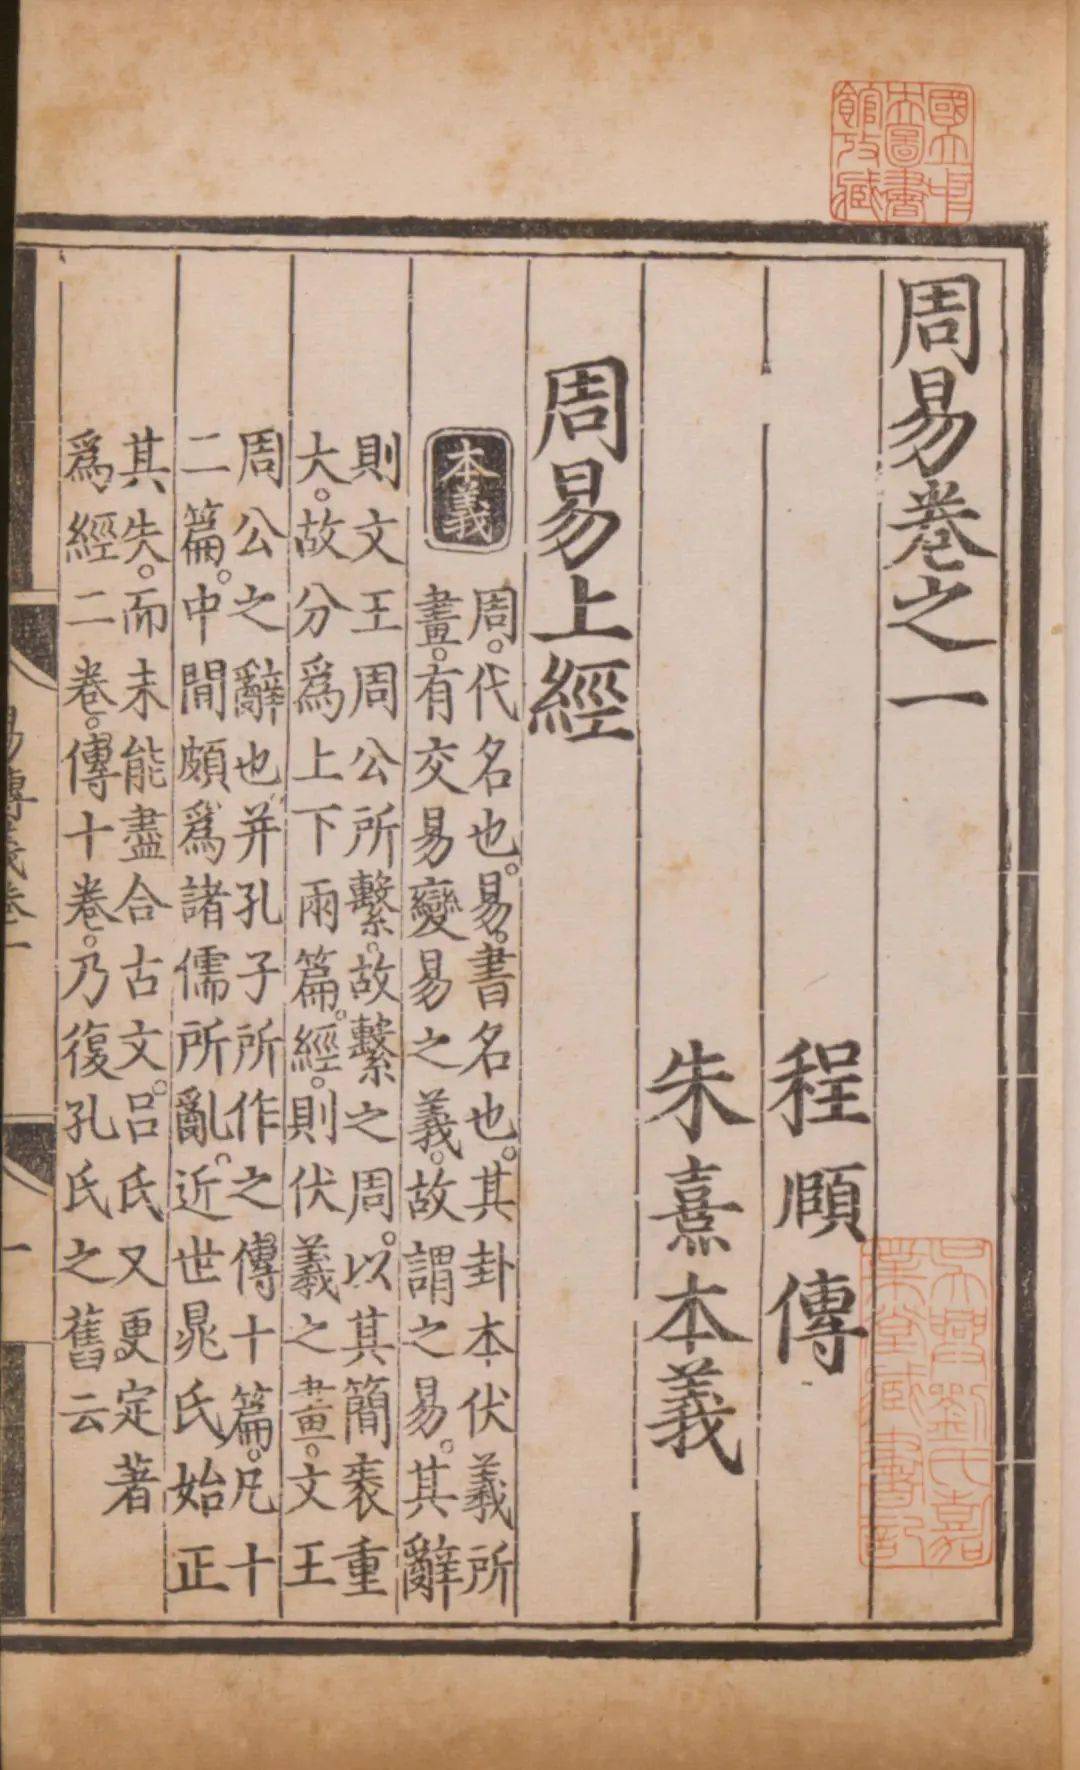 國立中
央圖書
館收藏
周易卷之一
程頤傳
朱熹本義
吳興劉氏嘉
業堂藏書記
周易上經
本義
周。代名也。易。書名也。其卦本伏羲所
畫。有交易變易之義。故謂之易。其辭
則文王周公所繫。故繫之周。以其簡袠重
大。故分爲上下兩篇。經。則伏羲之畫。文王
周公之辭也。并孔子所作之傳十篇。凡十
二篇。中間頗爲諸儒所亂。近世晁氏始正
其失。而未能盡合古文。呂氏又更定著
爲經二卷。傳十卷。乃復孔氏之舊云
易傳義卷一
一